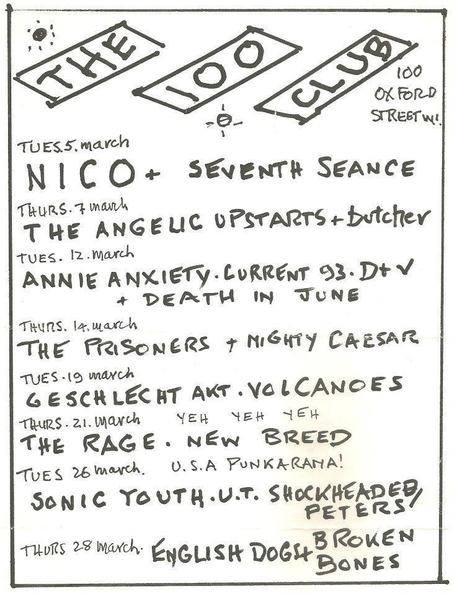 THE 100 CLUB
100
OXFORD
STREET W1.
TUES.5.march
NICO + SEVENTH SEANCE
THURS.7 march
THE ANGELIC UPSTARTS + butcher
TUES.12.march
ANNIE ANXIETY.CURRENT 93.D+V
+ DEATH IN JUNE
THURS.14.march
THE PRISONERS + MIGHTY CAESAR
TUES.19 march
GESCHLECHT AKT.VOLCANOES
THURS.21.march YEH YEH YEH
THE RAGE. NEW BREED
TUES 26 march. U.S.A PUNKARAMA!
SONIC YOUTH.U.T. SHOCKHEADED
PETERS/
THURS 28 march. ENGLISH DOGS+BROKEN
BONES